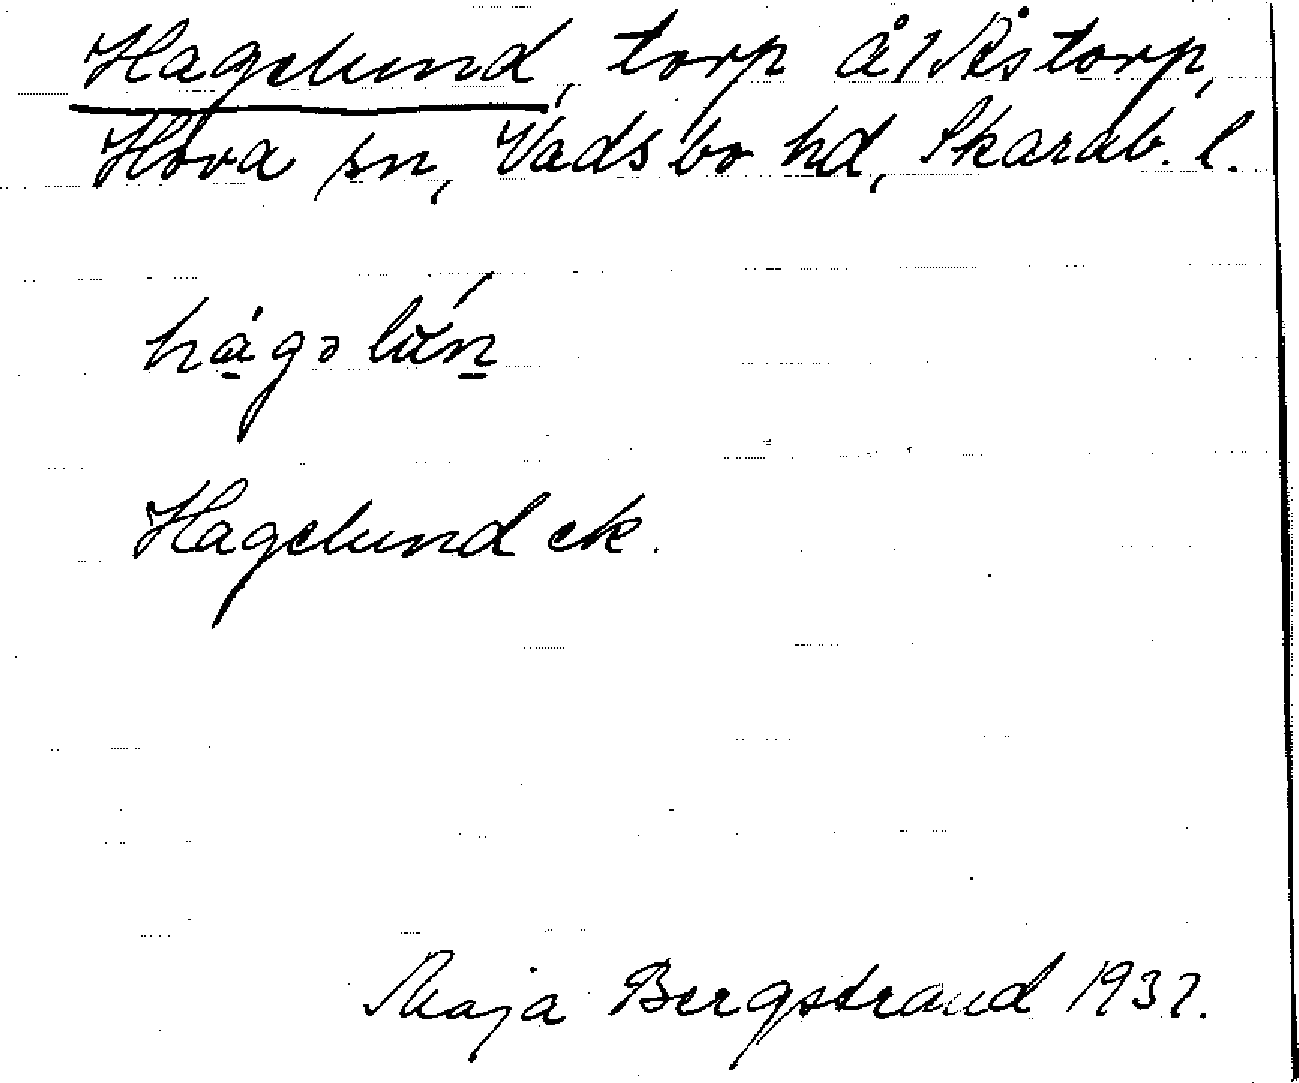 Hagelund, torp å Åstorp,
Hova sn, Vadsbo hd, Skarab. l.
hágəlún
Hagelund ek.
Maja Bergstrand 1937.